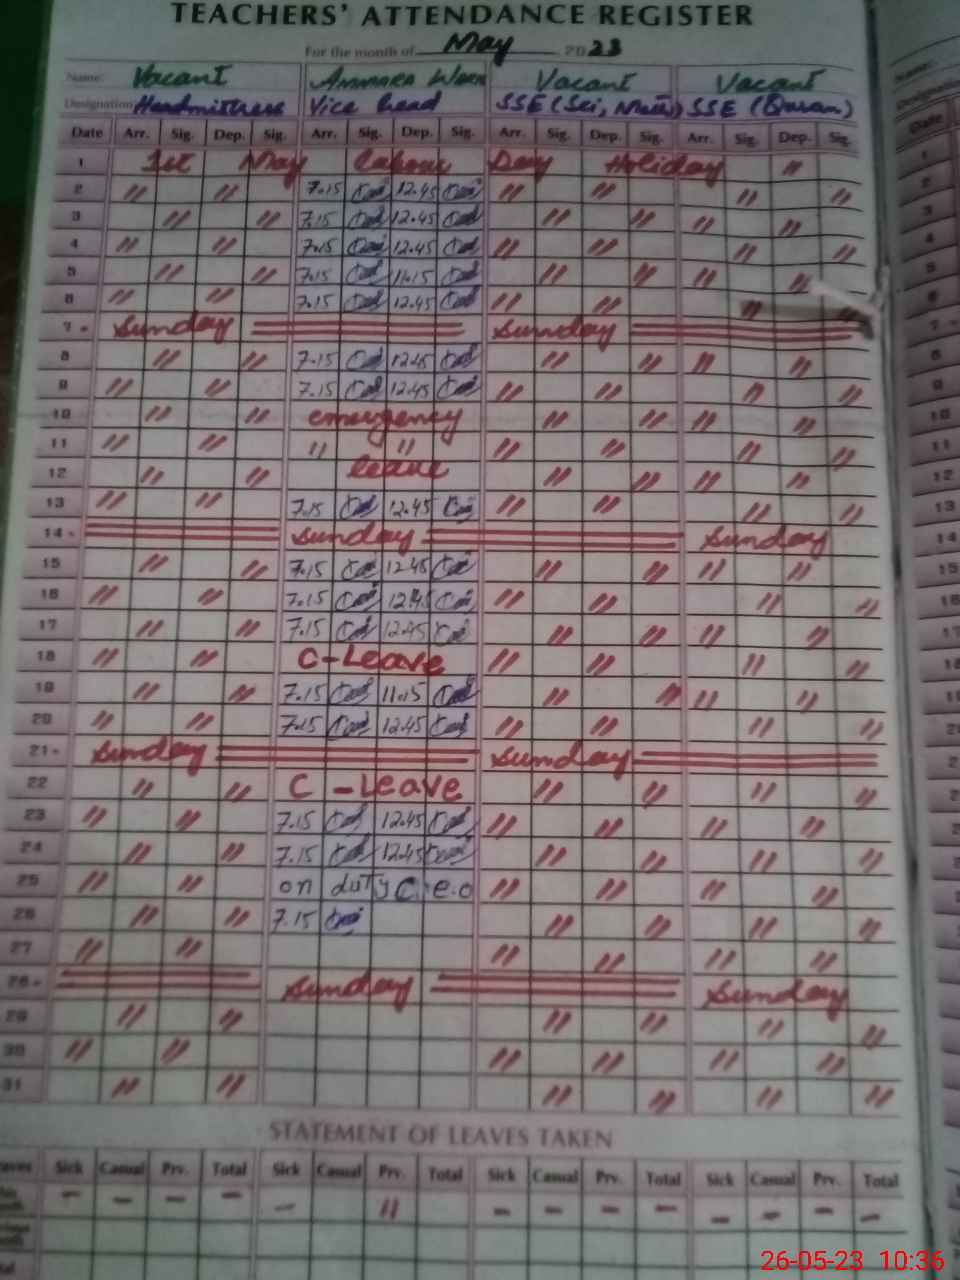 TEACHERS' ATTENDANCE REGISTER
For the month of May 2023
Name: Vacant Ammara Vacant Vacant
Designation Headmistress Vice head SSE (Sci, Math) SSE (Quran)
Date Arr. Sig. Dep. Sig. Arr. Sig. Dep. Sig. Arr. Sig. Dep. Sig. Arr. Sig. Dep. Sig.
1 1st May Labour Day Holiday "
2 " " 7.15 12.45 " " " "
3 " " 7.15 12.45 " " " "
4 " " 7.15 12.45 " " " "
5 " " 7.15 11.15 " " " "
6 " " 7.15 12.45 " " "
7 Sunday Sunday
8 " " 7.15 12.45 " " " "
9 " " 7.15 12.45 " " " "
10 " " emergency " " "
11 " " " " " " " "
12 " " leave " " " "
13 " " 7.15 12.45 " " " "
14 Sunday Sunday
15 " " 7.15 12.45 " " " "
16 " " 7.15 12.45 " " " "
17 " " 7.15 12.45 " " " "
18 " " C-Leave " " " "
19 " " 7.15 11.15 " " " "
20 " " 7.15 12.45 " " " "
21 Sunday Sunday
22 " " C-Leave " " " "
23 " " 7.15 12.45 " " " "
24 " " 7.15 12.45 " " " "
25 " " on duty C.e.o " " " "
26 " " 7.15 " " " "
27 " " " " " "
28 Sunday Sunday
29 " " " " " "
30 " " " " " "
31 " " " " " "
STATEMENT OF LEAVES TAKEN
Sick Casual Prv. Total Sick Casual Prv. Total Sick Casual Prv. Total Sick Casual Prv. Total
- - - - - " - - - - - - - -
26-05-23 10:36